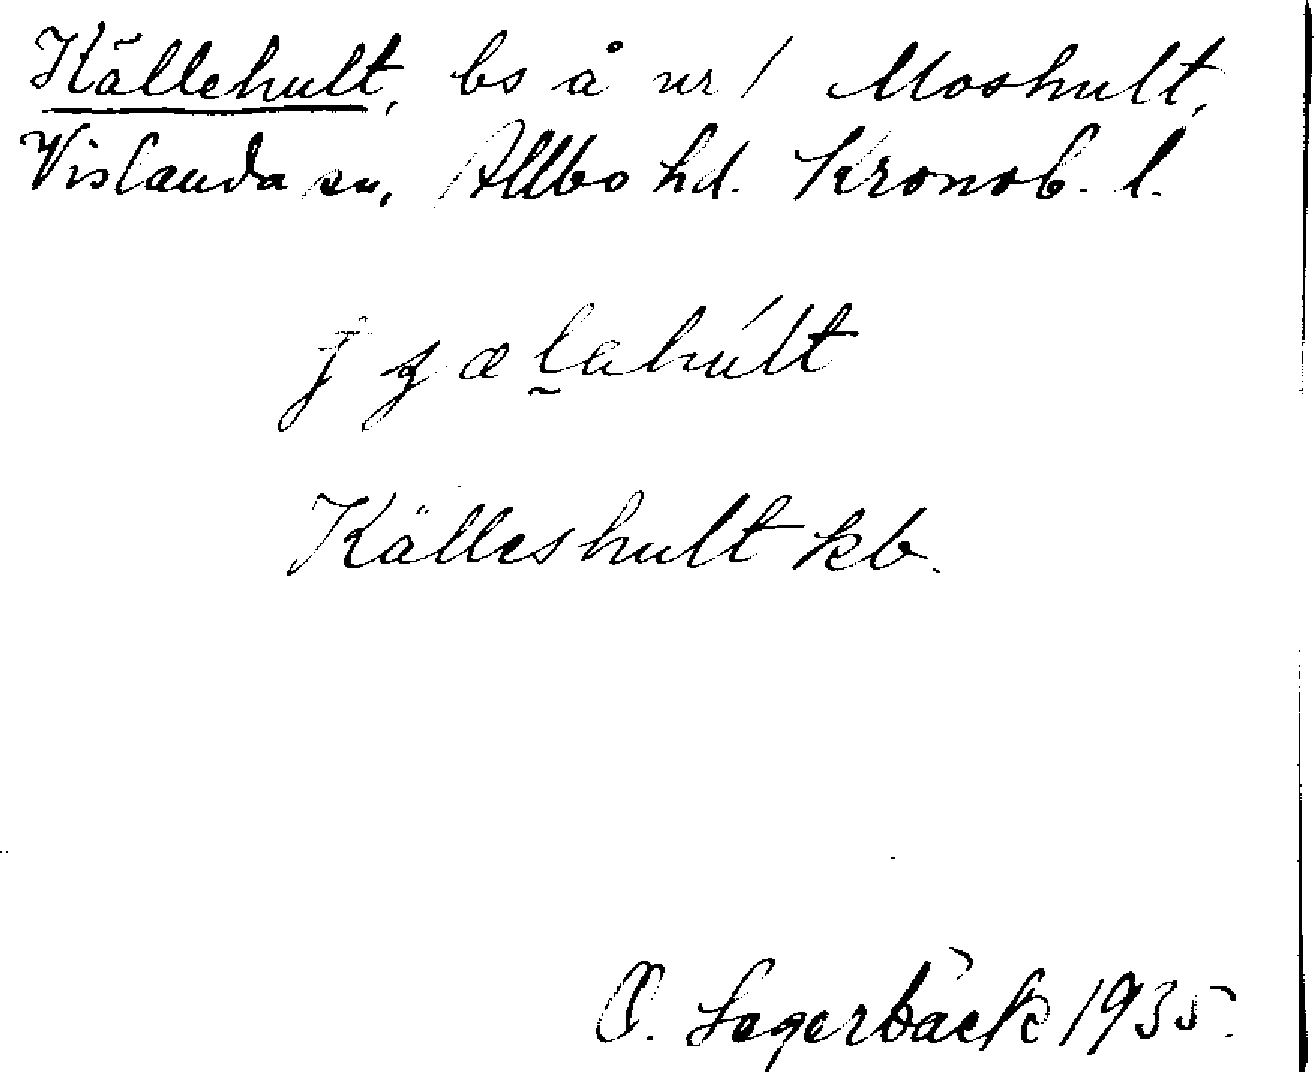 Källehult, bs å nr 1 Moshult,
Vislanda sn, Allbo hd. Kronob. l.
Källeshult kb.
O. Lagerbäck 1935.